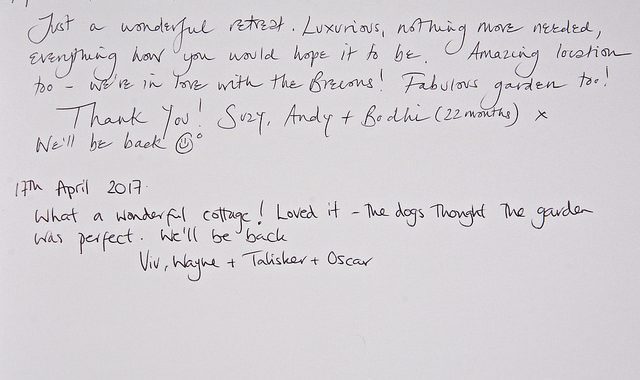 Just a wonderful retreat. Luxurious, nothing more needed,
everything how you would hope it to be. Amazing location
too - we're in love with the Brecons! Fabulous garden too!
Thank You! Suzy, Andy + Bodhi (22 months) x
We'll be back ☺
17th April 2017.
What a wonderful cottage! Loved it - The dogs thought the garden
was perfect. We'll be back
Viv, Wayne + Talisker + Oscar